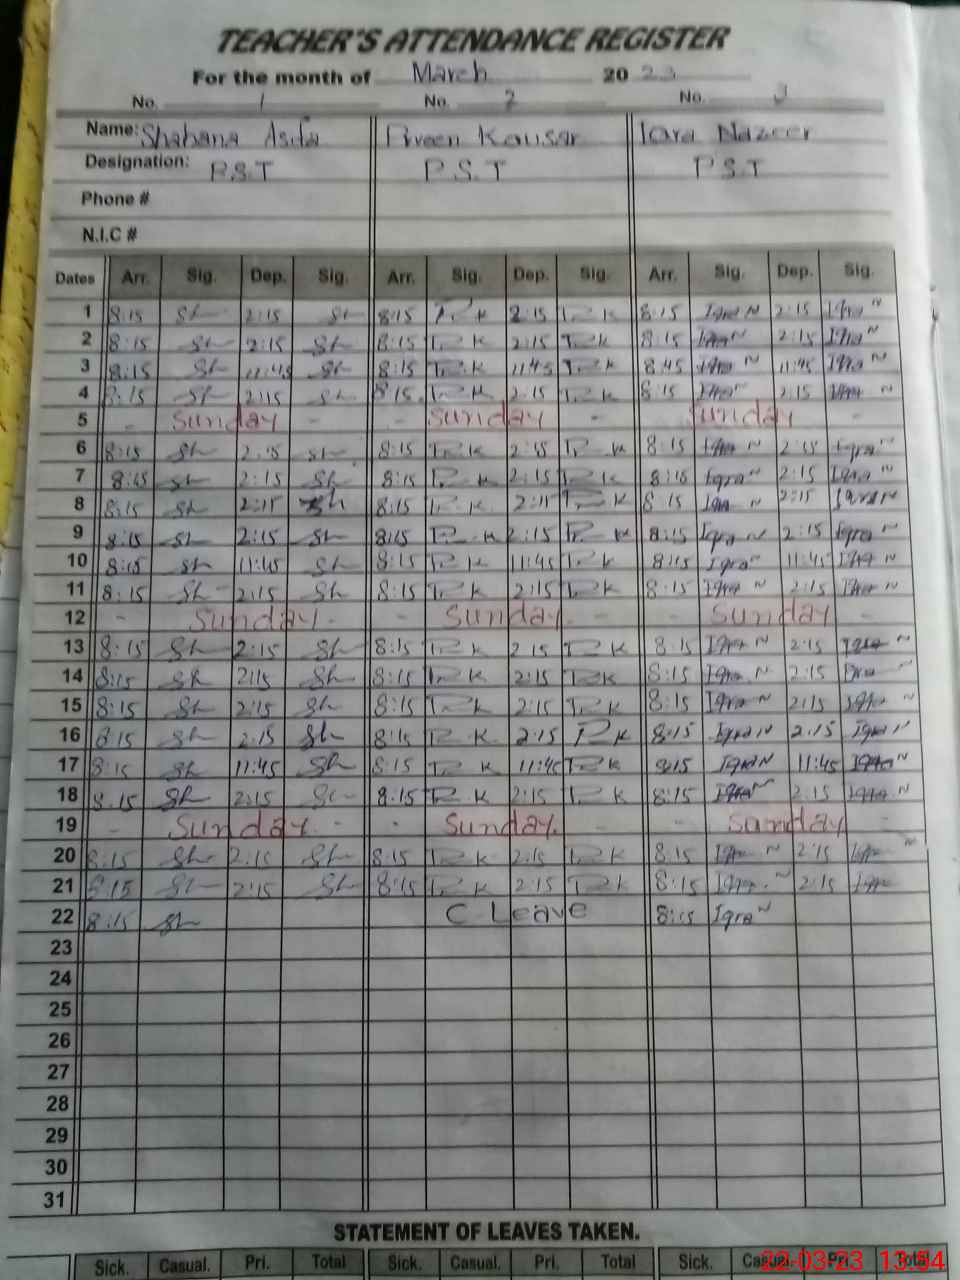 TEACHER'S ATTENDANCE REGISTER
For the month of March 20 23
No. 1 No. 2 No. 3
Name: Shahana Asifa Prveen Kousar Iqra Nazeer
Designation: P.S.T P.S.T P.S.T
Phone #
N.I.C #
Dates Arr. Sig. Dep. Sig. Arr. Sig. Dep. Sig. Arr. Sig. Dep. Sig.
1 8:15 Sh 2:15 Sh 8:15 P.K 2:15 P.K 8:15 Iqra N 2:15 Iqra N
2 8:15 Sh 2:15 Sh 8:15 P.K 2:15 P.K 8:15 Iqra N 2:15 Iqra N
3 8:15 Sh 11:45 Sh 8:15 P.K 11:45 P.K 8:45 Iqra N 11:45 Iqra N
4 8:15 Sh 2:15 Sh 8:15 P.K 2:15 P.K 8:15 Iqra N 2:15 Iqra N
5 - Sunday - - Sunday - - Sunday -
6 8:15 Sh 2:15 Sh 8:15 P.K 2:15 P.K 8:15 Iqra N 2:15 Iqra N
7 8:15 Sh 2:15 Sh 8:15 P.K 2:15 P.K 8:15 Iqra N 2:15 Iqra N
8 8:15 Sh 2:15 Sh 8:15 P.K 2:15 P.K 8:15 Iqra N 2:15 Iqra N
9 8:15 Sh 2:15 Sh 8:15 P.K 2:15 P.K 8:15 Iqra N 2:15 Iqra N
10 8:15 Sh 11:45 Sh 8:15 P.K 11:45 P.K 8:15 Iqra N 11:45 Iqra N
11 8:15 Sh 2:15 Sh 8:15 P.K 2:15 P.K 8:15 Iqra N 2:15 Iqra N
12 - Sunday - - Sunday - - Sunday -
13 8:15 Sh 2:15 Sh 8:15 P.K 2:15 P.K 8:15 Iqra N 2:15 Iqra N
14 8:15 Sh 2:15 Sh 8:15 P.K 2:15 P.K 8:15 Iqra N 2:15 Iqra N
15 8:15 Sh 2:15 Sh 8:15 P.K 2:15 P.K 8:15 Iqra N 2:15 Iqra N
16 8:15 Sh 2:15 Sh 8:15 P.K 2:15 P.K 8:15 Iqra N 2:15 Iqra N
17 8:15 Sh 11:45 Sh 8:15 P.K 11:45 P.K 8:15 Iqra N 11:45 Iqra N
18 8:15 Sh 2:15 Sh 8:15 P.K 2:15 P.K 8:15 Iqra N 2:15 Iqra N
19 - Sunday - - Sunday - - Sunday -
20 8:15 Sh 2:15 Sh 8:15 P.K 2:15 P.K 8:15 Iqra N 2:15 Iqra N
21 8:15 Sh 2:15 Sh 8:15 P.K 2:15 P.K 8:15 Iqra N 2:15 Iqra
22 8:15 Sh C Leave 8:15 Iqra N
23
24
25
26
27
28
29
30
31
STATEMENT OF LEAVES TAKEN.
Sick. Casual. Pri. Total Sick. Casual. Pri. Total Sick. Casual. Pri. Total
22-03-23 13:54